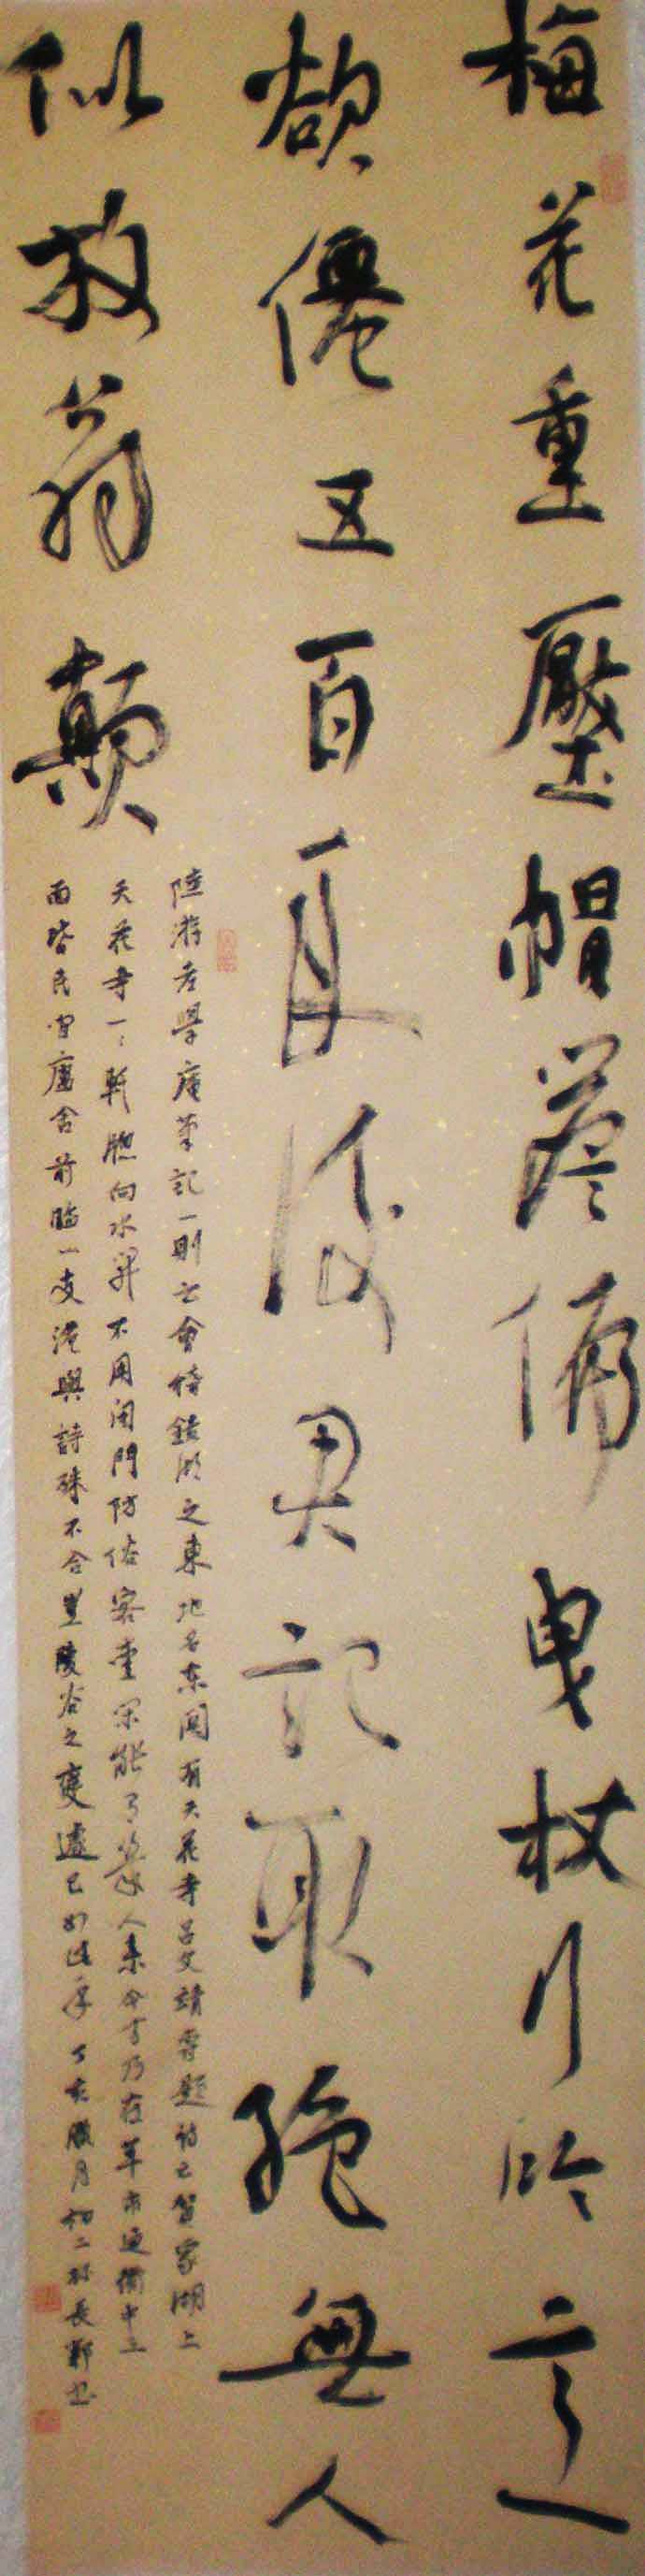 梅花重壓帽簷偏曳杖行吟意
欲僊五百年後君記取絕無人
似放翁顛
陸游老學庵筆記一則云會稽鏡湖之東地名東關有天花寺呂文靖嘗題詩云賀家湖上
天花寺一一軒牕向水開不用閉門防俗客愛閑能有幾人來今寺乃在草市通衢中三
面皆民間廬舍前臨一支港與詩殊不合豈陵谷之變遽已如此乎丁亥臘月初二